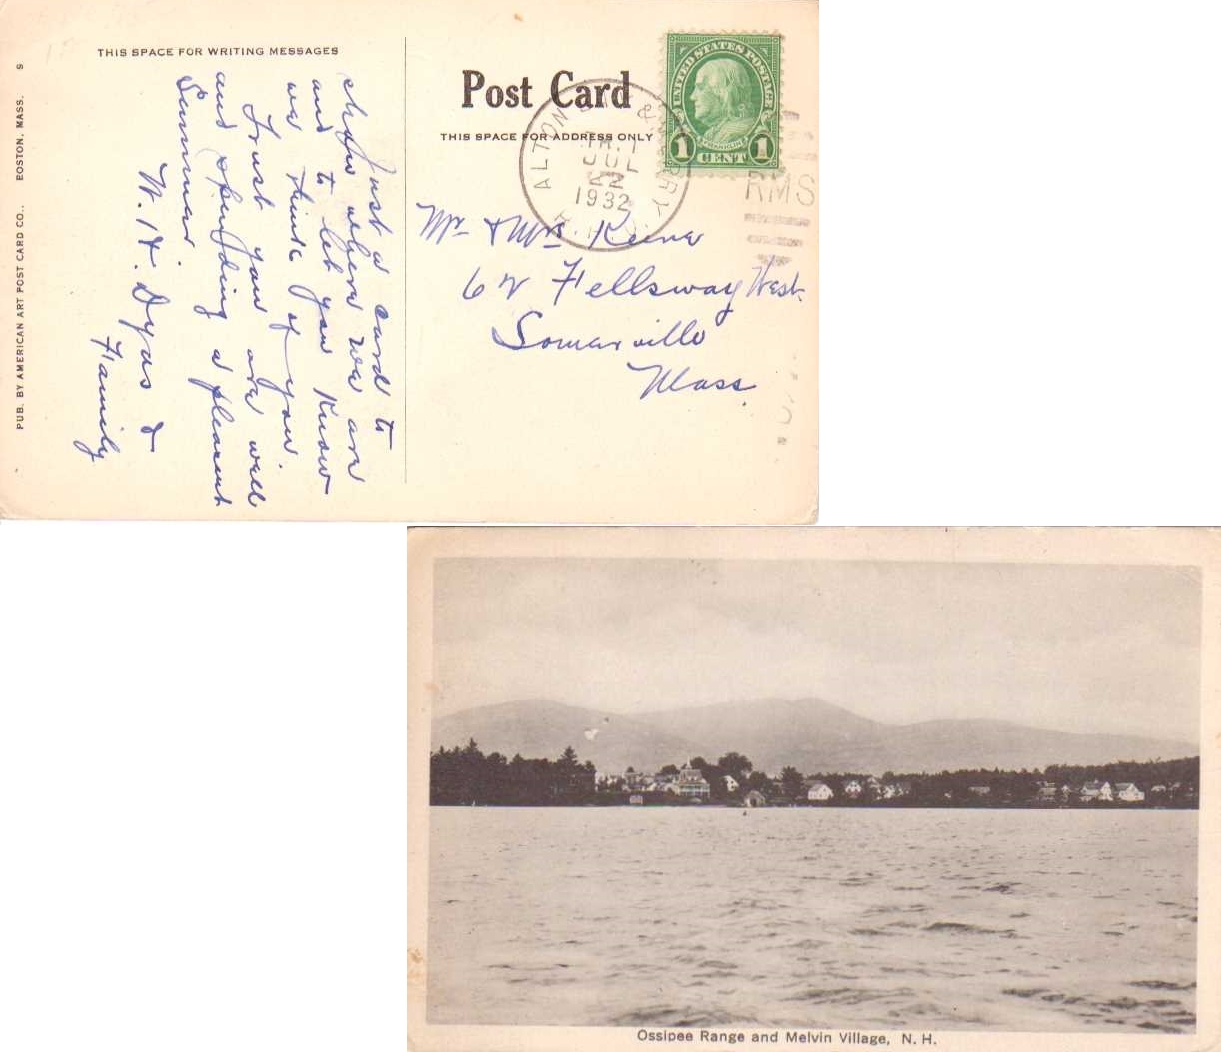 THIS SPACE FOR WRITING MESSAGES
Just a card to
show where we are
and to let you know
we think of you.
Trust you are well
and spending a pleasant
Summer.
W. H. Dyas &
Family
PUB. BY AMERICAN ART POST CARD CO., BOSTON, MASS. S
Post Card
THIS SPACE FOR ADDRESS ONLY
UNITED STATES POSTAGE
FRANKLIN
1 CENT 1
ALTON &
TR. 1
JUL
22
1932
RMS
Mr & Mrs Keene
Fellsway West.
Somerville
Mass.
Ossipee Range and Melvin Village, N. H.